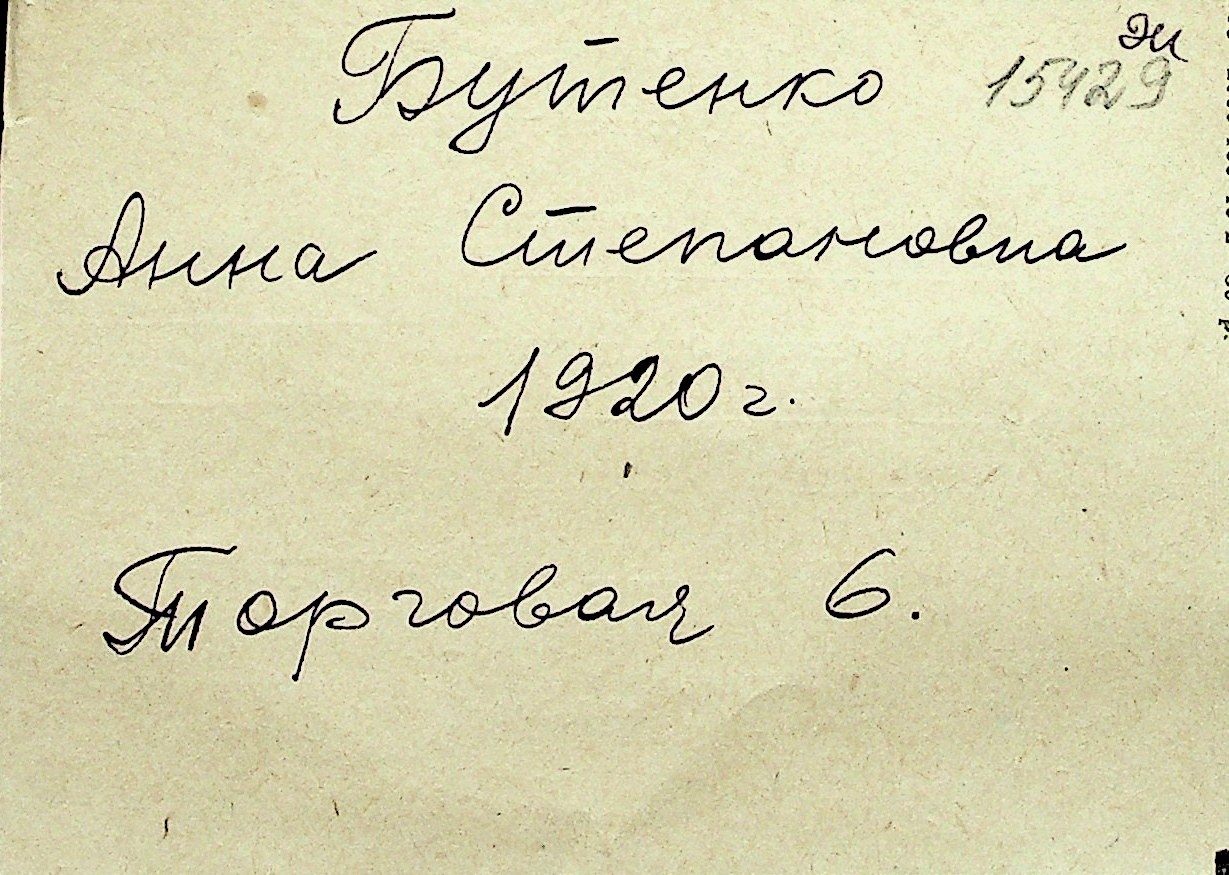 Бутенко
15429
Анна Степановна
1920 г.
Торговая 6.